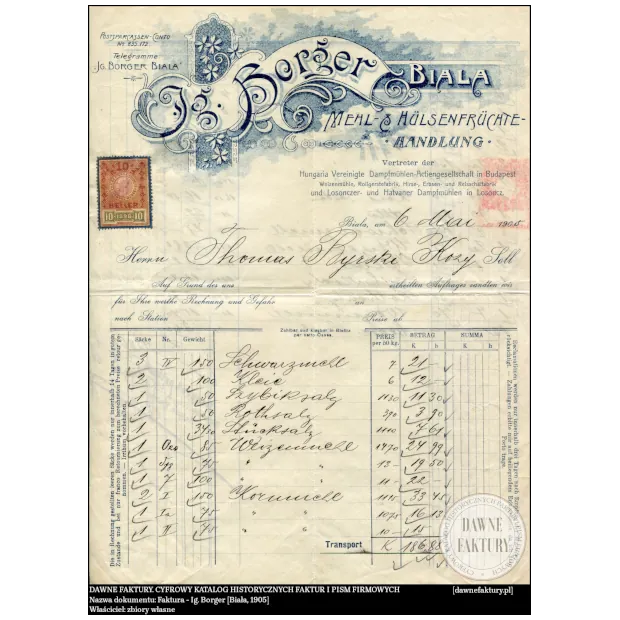 POSTSPARCASSEN-CONTO
Nr. 835.172.
Telegramme
"JG. BORGER BIALA"
Ig. Borger BIALA
MEHL- & HÜLSENFRÜCHTE-
HANDLUNG.
Vertreter der
Hungaria Vereinigte Dampfmühlen-Actiengesellschaft in Budapest
Weizenmühle, Rollgerstefabrik, Hirse-, Erbsen- und Reisschälfabrik
und Losonczer- und Hatvaner Dampfmühlen in Losoncz.
10
HELLER
10 10
Biala, am 6 Mai 1905
Herrn Thomas Byrski Kozy Soll
Auf Grund des uns ertheilten Auftrages sandten wir
für Ihre werthe Rechnung und Gefahr an
nach Station Preise ab
Zahlbar und klagbar in Biala
per netto Cassa.
Säcke Nr. Gewicht PREIS per 50 kg. BETRAG K h SUMMA K h
3 IV 150 Schwarzmehl 7 21 –
2 100 Kleie 6 12 –
1 50 1130 11 30
1 50 Rothsalz 390 3 90
1 Stücksalz 1110 7 61
1 85 Weizenmehl 1470 24 99
1 75 " " 13 – 19 50
1 7 100 " " 11 – 22 –
2 I 150 Kornmehl 1115 33 45
1 Ia 75 " " 1075 16 13
1 II 75 " " 10 – 15 –
Transport K 186 88
DAWNE
FAKTURY
DAWNE FAKTURY. CYFROWY KATALOG HISTORYCZNYCH FAKTUR I PISM FIRMOWYCH [dawnefaktury.pl]
Nazwa dokumentu: Faktura - Ig. Borger [Biala, 1905]
Właściciel: zbiory własne